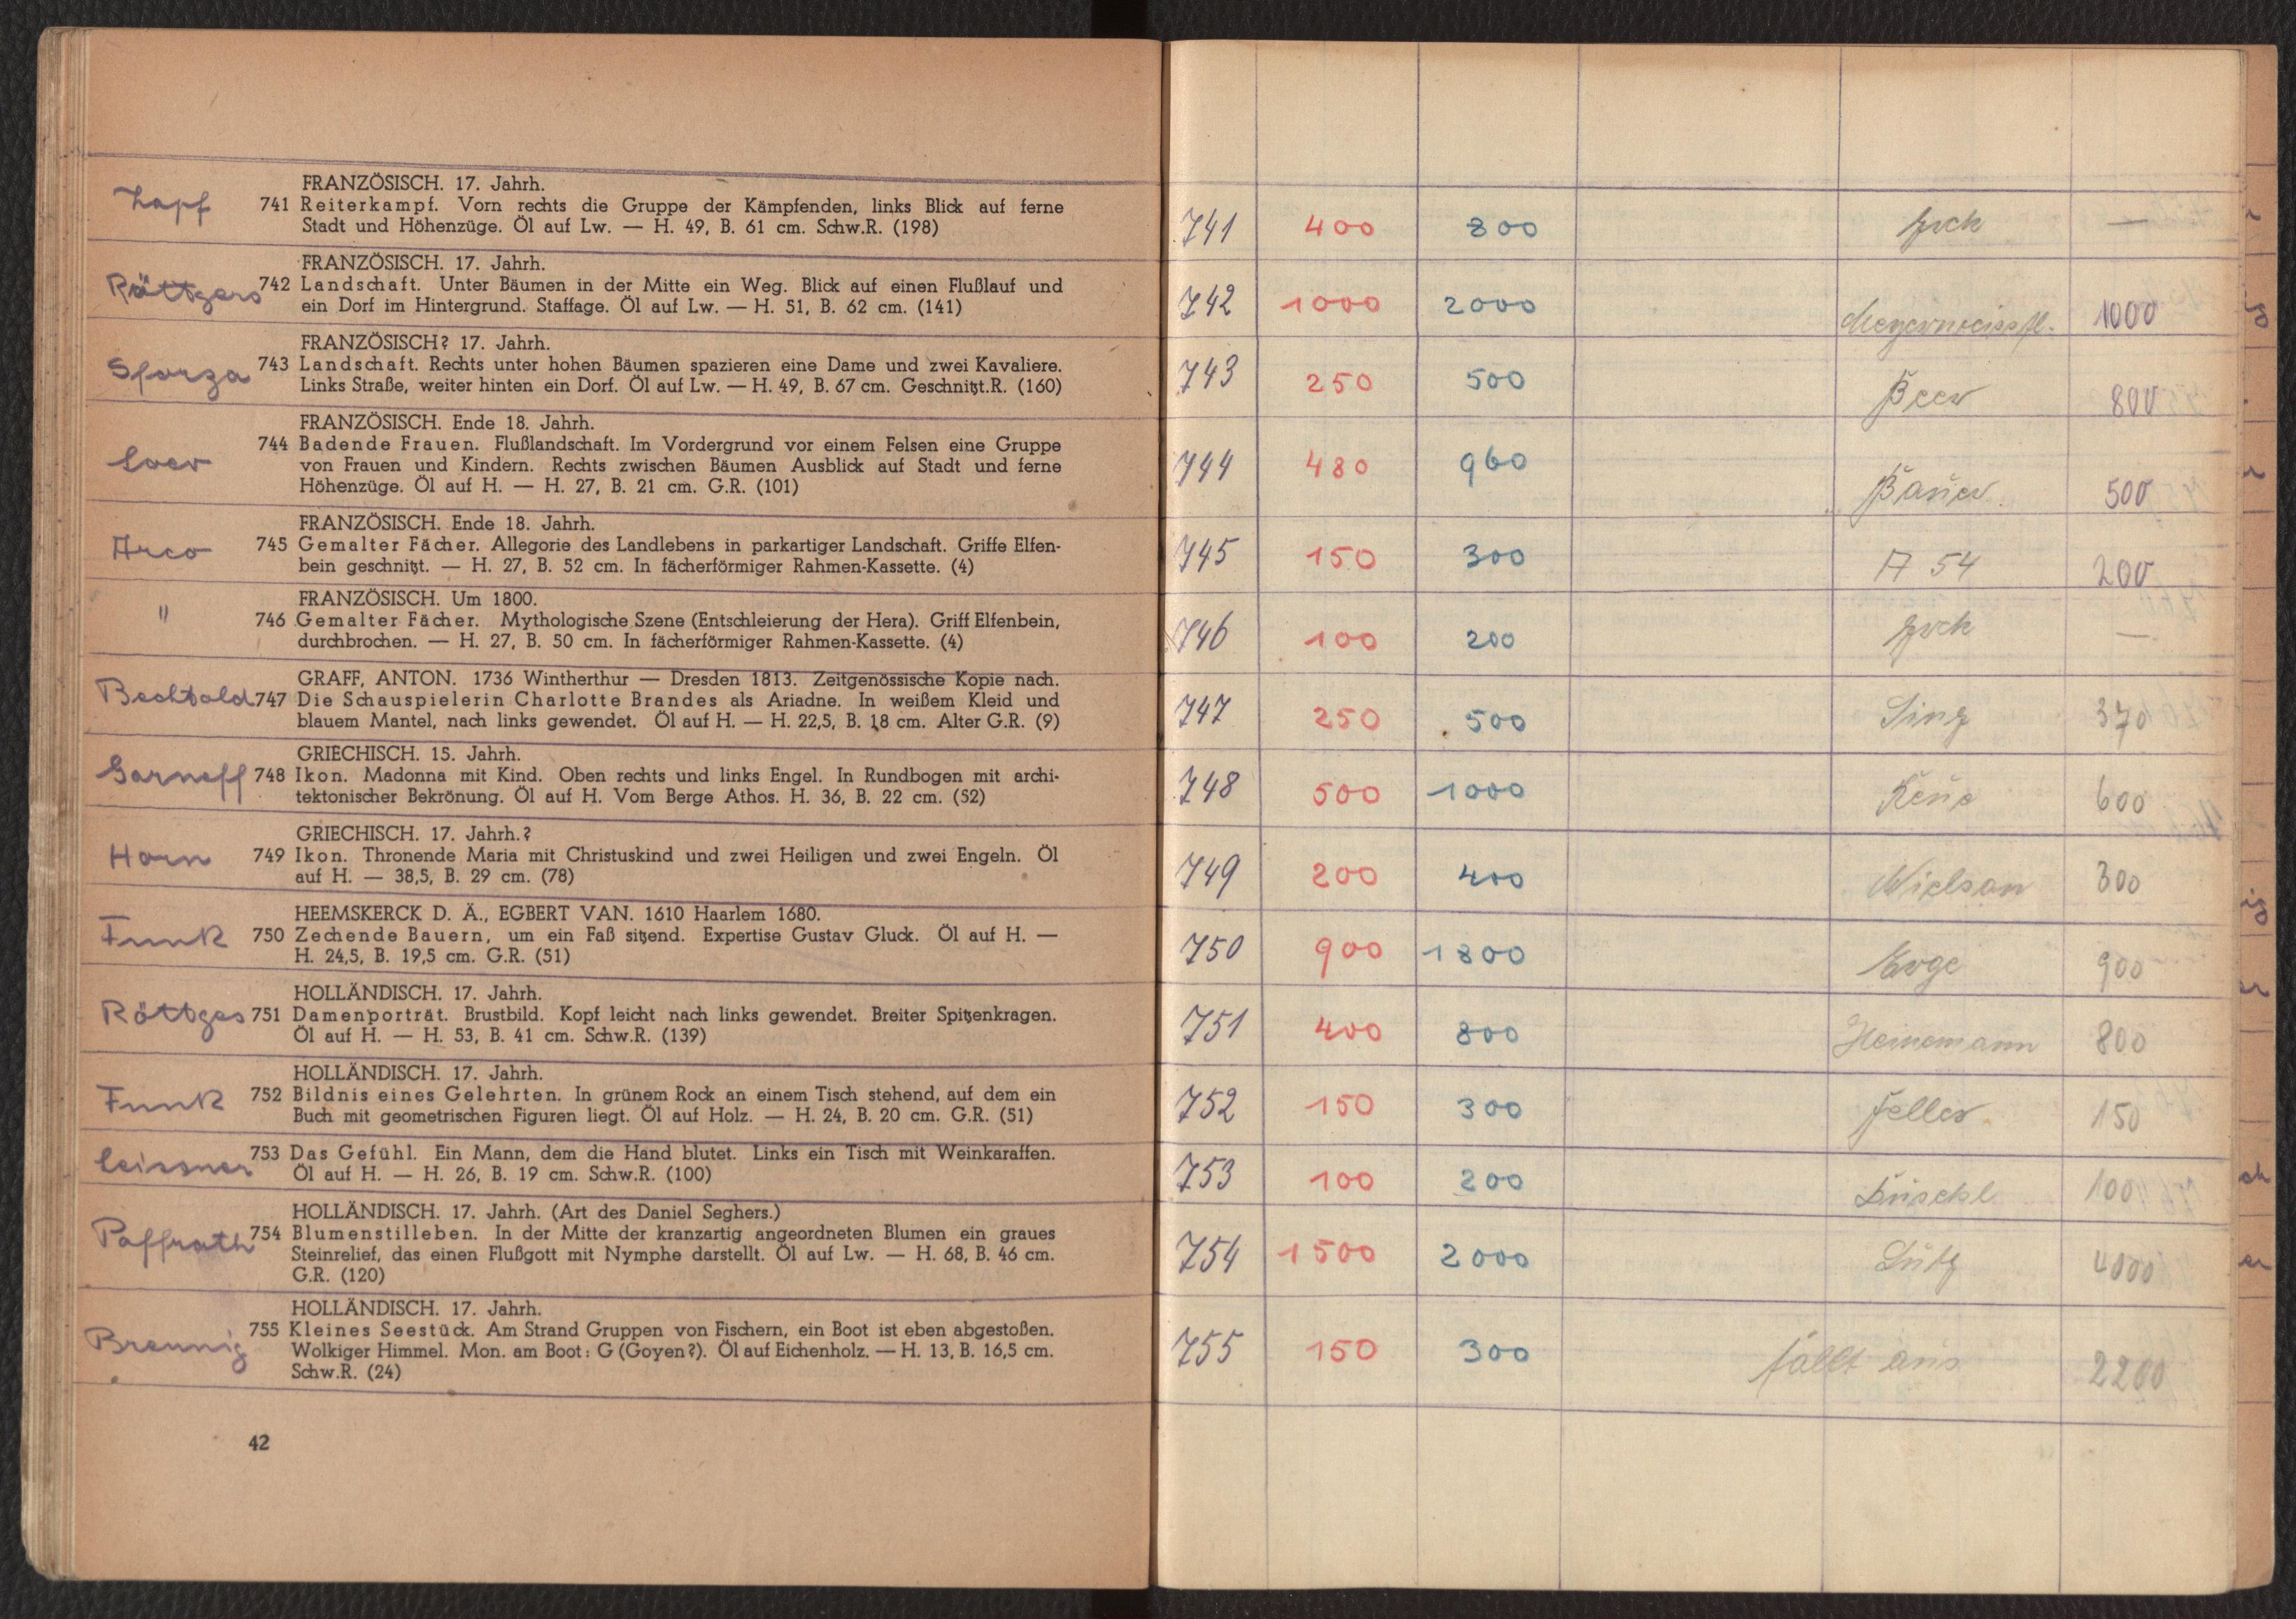 Zapf
FRANZÖSISCH. 17. Jahrh.
741 Reiterkampf. Vorn rechts die Gruppe der Kämpfenden, links Blick auf ferne
Stadt und Höhenzüge. Öl auf Lw. — H. 49, B. 61 cm. Schw.R. (198)
Röttgers
FRANZÖSISCH. 17. Jahrh.
742 Landschaft. Unter Bäumen in der Mitte ein Weg. Blick auf einen Flußlauf und
ein Dorf im Hintergrund. Staffage. Öl auf Lw. — H. 51, B. 62 cm. (141)
Sforza
FRANZÖSISCH? 17. Jahrh.
743 Landschaft. Rechts unter hohen Bäumen spazieren eine Dame und zwei Kavaliere.
Links Straße, weiter hinten ein Dorf. Öl auf Lw. — H. 49, B. 67 cm. Geschnitzt.R. (160)
Loev
FRANZÖSISCH. Ende 18. Jahrh.
744 Badende Frauen. Flußlandschaft. Im Vordergrund vor einem Felsen eine Gruppe
von Frauen und Kindern. Rechts zwischen Bäumen Ausblick auf Stadt und ferne
Höhenzüge. Öl auf H. — H. 27, B. 21 cm. G.R. (101)
Arco
FRANZÖSISCH. Ende 18. Jahrh.
745 Gemalter Fächer. Allegorie des Landlebens in parkartiger Landschaft. Griffe Elfen-
bein geschnitzt. — H. 27, B. 52 cm. In fächerförmiger Rahmen-Kassette. (4)
"
FRANZÖSISCH. Um 1800.
746 Gemalter Fächer. Mythologische Szene (Entschleierung der Hera). Griff Elfenbein,
durchbrochen. — H. 27, B. 50 cm. In fächerförmiger Rahmen-Kassette. (4)
Bechtold
GRAFF, ANTON. 1736 Wintherthur — Dresden 1813. Zeitgenössische Kopie nach.
747 Die Schauspielerin Charlotte Brandes als Ariadne. In weißem Kleid und
blauem Mantel, nach links gewendet. Öl auf H. — H. 22,5, B. 18 cm. Alter G.R. (9)
Garneff
GRIECHISCH. 15. Jahrh.
748 Ikon. Madonna mit Kind. Oben rechts und links Engel. In Rundbogen mit archi-
tektonischer Bekrönung. Öl auf H. Vom Berge Athos. H. 36, B. 22 cm. (52)
Horn
GRIECHISCH. 17. Jahrh.?
749 Ikon. Thronende Maria mit Christuskind und zwei Heiligen und zwei Engeln. Öl
auf H. — 38,5, B. 29 cm. (78)
Funk
HEEMSKERCK D. Ä., EGBERT VAN. 1610 Haarlem 1680.
750 Zechende Bauern, um ein Faß sitzend. Expertise Gustav Gluck. Öl auf H. —
H. 24,5, B. 19,5 cm. G.R. (51)
Röttges
HOLLÄNDISCH. 17. Jahrh.
751 Damenporträt. Brustbild. Kopf leicht nach links gewendet. Breiter Spitzenkragen.
Öl auf H. — H. 53, B. 41 cm. Schw.R. (139)
Funk
HOLLÄNDISCH. 17. Jahrh.
752 Bildnis eines Gelehrten. In grünem Rock an einem Tisch stehend, auf dem ein
Buch mit geometrischen Figuren liegt. Öl auf Holz. — H. 24, B. 20 cm. G.R. (51)
Leissner
753 Das Gefühl. Ein Mann, dem die Hand blutet. Links ein Tisch mit Weinkaraffen.
Öl auf H. — H. 26, B. 19 cm. Schw.R. (100)
Paffrath
HOLLÄNDISCH. 17. Jahrh. (Art des Daniel Seghers.)
754 Blumenstilleben. In der Mitte der kranzartig angeordneten Blumen ein graues
Steinrelief, das einen Flußgott mit Nymphe darstellt. Öl auf Lw. — H. 68, B. 46 cm.
G.R. (120)
Brennig
HOLLÄNDISCH. 17. Jahrh.
755 Kleines Seestück. Am Strand Gruppen von Fischern, ein Boot ist eben abgestoßen.
Wolkiger Himmel. Mon. am Boot: G (Goyen?). Öl auf Eichenholz. — H. 13, B. 16,5 cm.
Schw.R. (24)
42
741 400 800 —
742 1000 2000 1000
743 250 500 Beer 800
744 480 960 Bauer 500
745 150 300 A 54 200
746 100 200 —
747 250 500 Sing 370
748 500 1000 600
749 200 400 Nielsan 300
750 900 1800 900
751 400 800 Heinemann 800
752 150 300 Feller 150
753 100 200 100
754 1500 2000 4000
755 150 300 fällt aus 2200